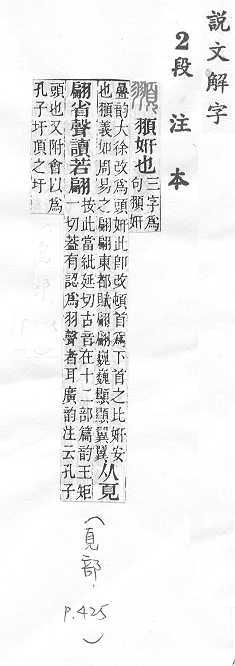 說文解字
2段注本
頨妍也三字爲
句頨妍
疊韵大徐改爲頭妍此卽改頓首爲下首之比妍安
也頨義如周易之翩翩東都賦翩翩巍巍顯顯翼翼从頁
翩省聲讀若翩按此當紕延切古音在十二部篇韵王矩
一切蓋有認爲羽聲者耳廣韵注云孔子
頭也又附會以爲
孔子圩頂之圩
(頁部, P.425)